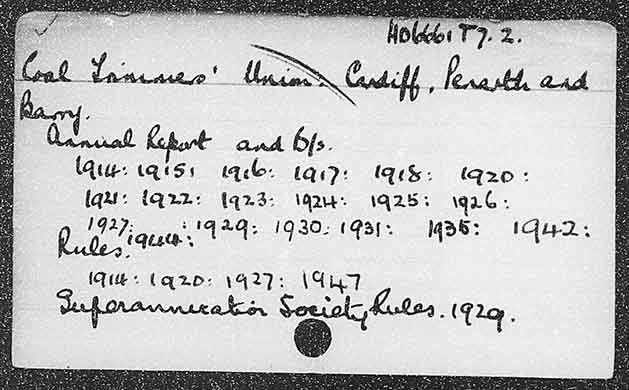 HD6661 T7.2.
Coal Trimmers' Union. Cardiff, Penarth and
Barry.
Annual Report and b/s.
1914: 1915: 1916: 1917: 1918: 1920:
1921: 1922: 1923: 1924: 1925: 1926:
1927: 1929: 1930: 1931: 1935: 1942:
1944:
Rules.
1914: 1920: 1927: 1947
Superannuation Society Rules. 1929.